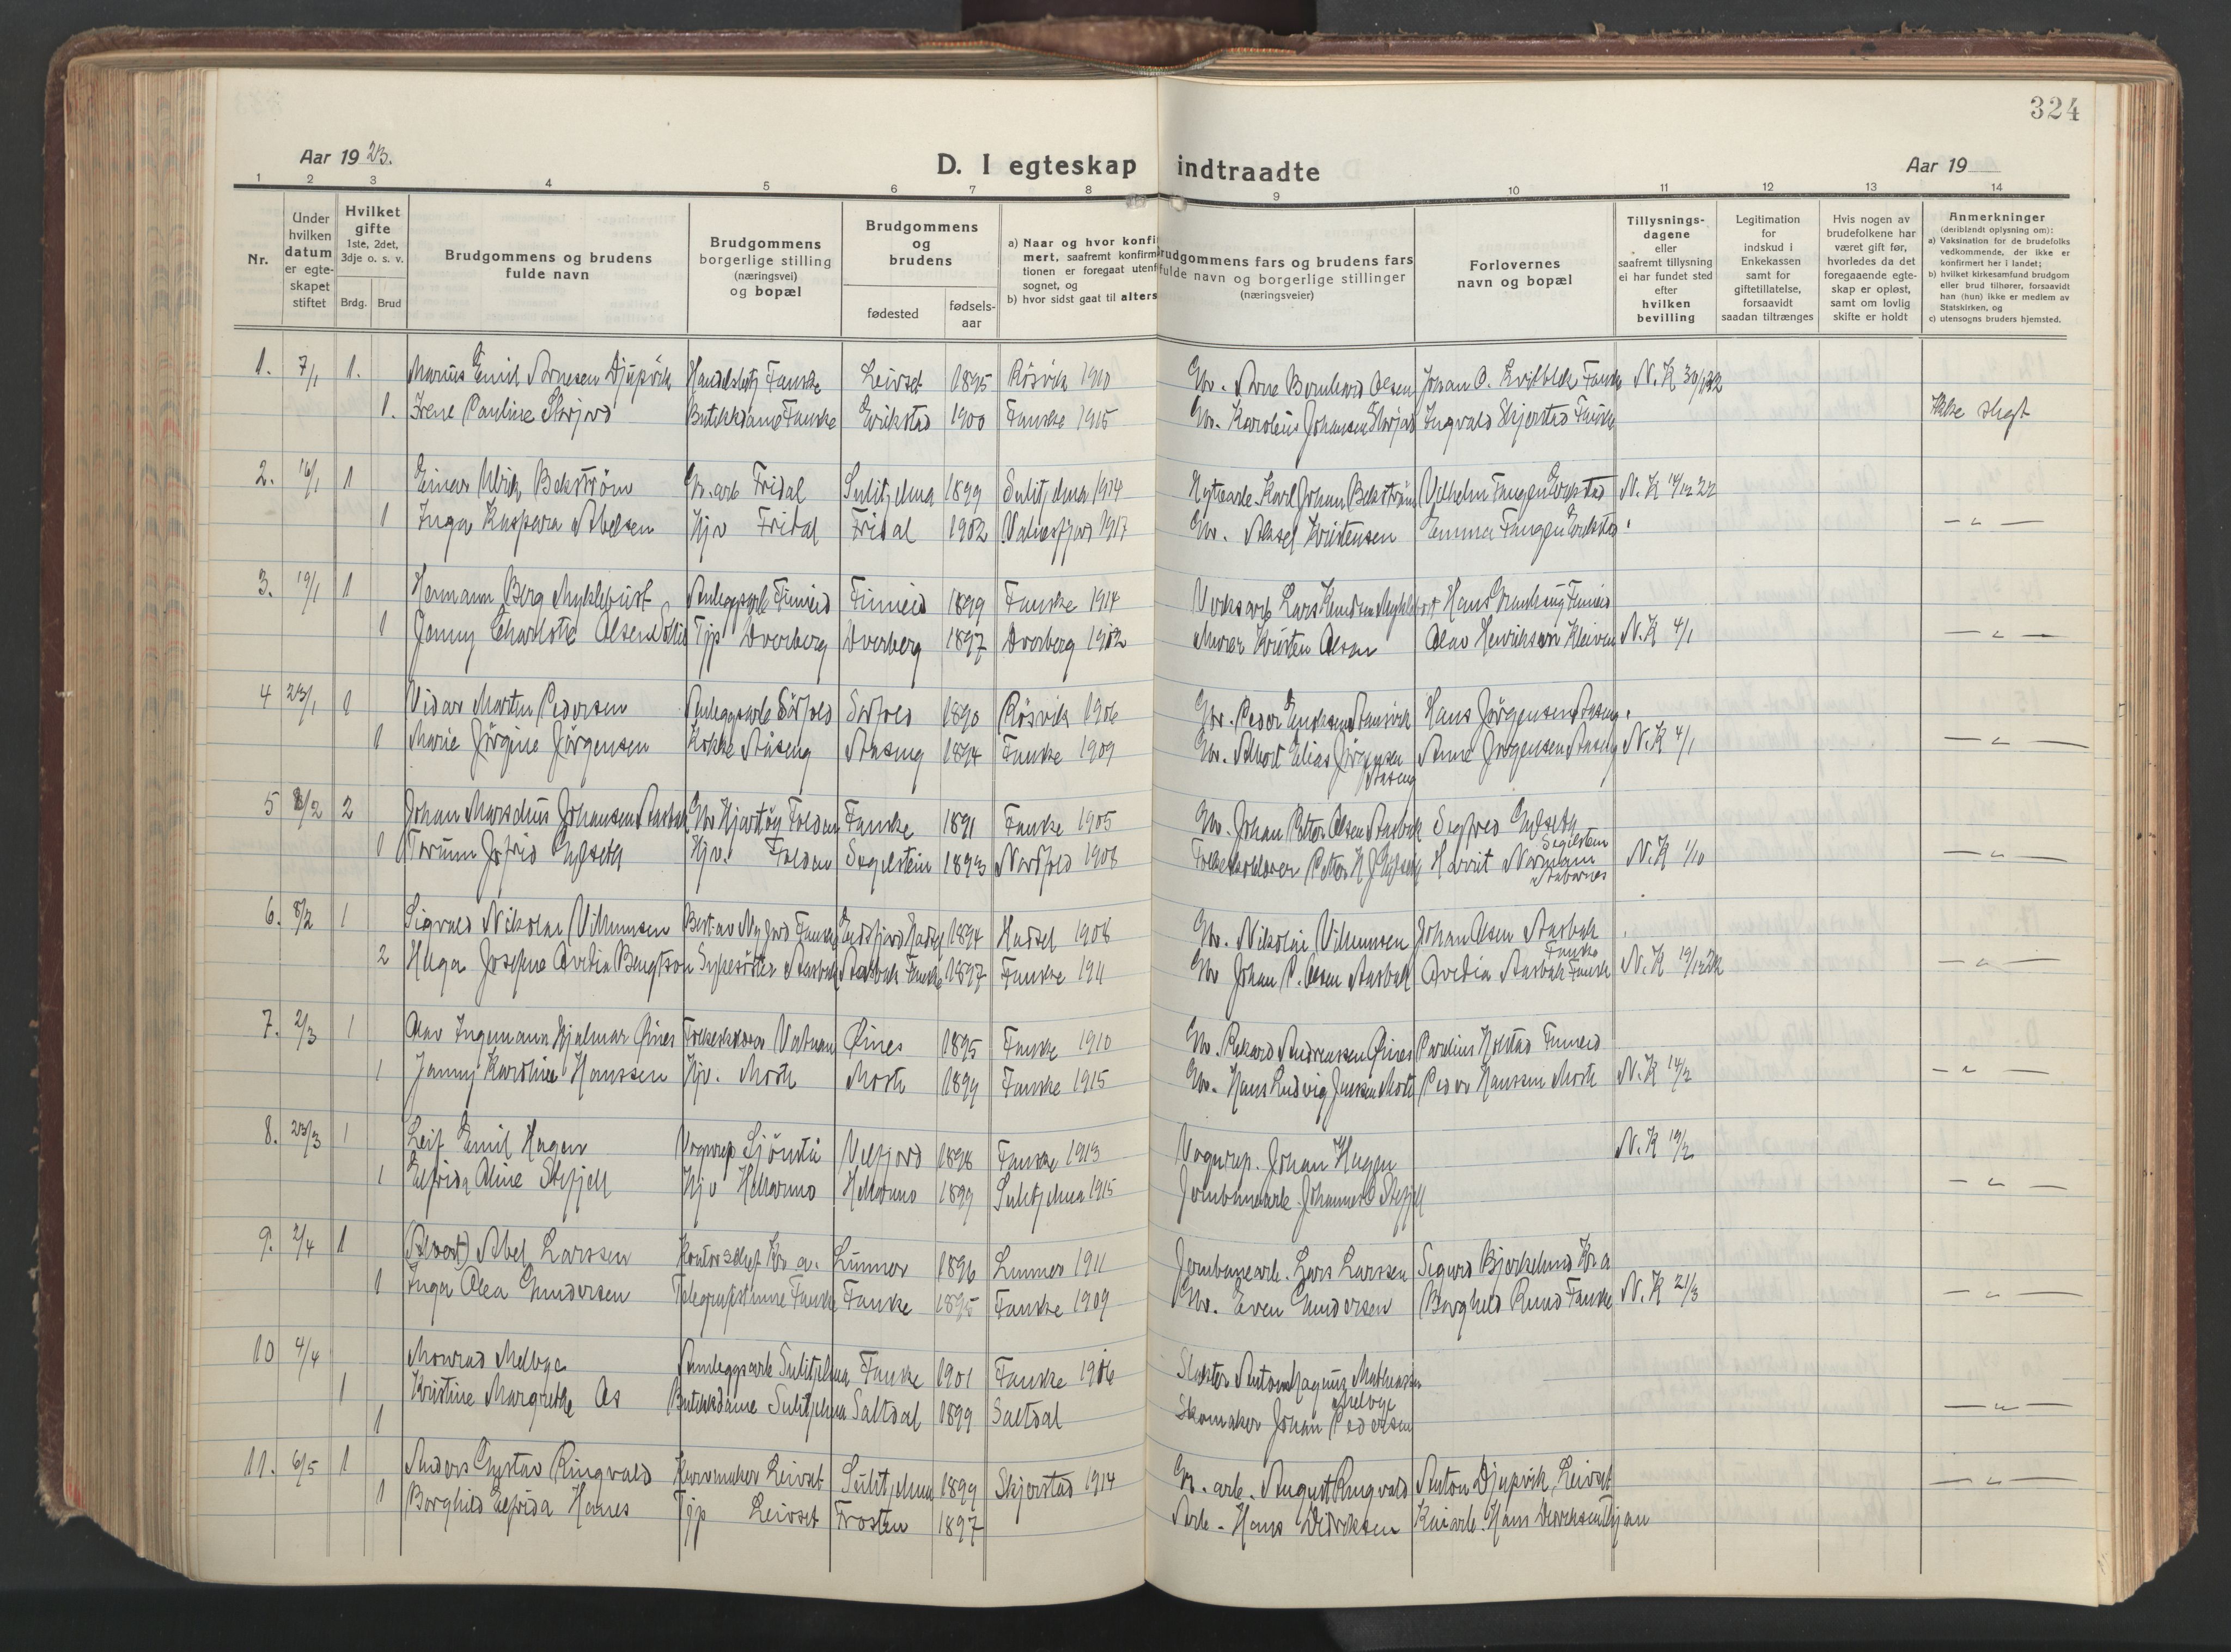 324
Aar 1923.
D. I egteskap indtraadte
Aar 19
1 2 3 4 5 6 7 8 9 10 11 12 13 14
Nr.
Under hvilken datum er egteskapet stiftet
Hvilket gifte 1ste, 2det, 3dje o. s. v.
Brdg. Brud
Brudgommens og brudens fulde navn
Brudgommens borgerlige stilling (næringsvei) og bopæl
Brudgommens og brudens
fødested
fødsels-aar
a) Naar og hvor konfirmert, saafremt konfirmationen er foregaat utenfor sognet, og
b) hvor sidst gaat til alters
Brudgommens fars og brudens fars fulde navn og borgerlige stillinger (næringsveier)
Forlovernes navn og bopæl
Tillysnings-dagene eller saafremt tillysning ei har fundet sted efter hvilken bevilling
Legitimation for indskud i Enkekassen samt for giftetillatelse, forsaavidt saadan tiltrænges
Hvis nogen av brudefolkene har været gift før, hvorledes da det foregaaende egteskap er opløst, samt om lovlig skifte er holdt
Anmerkninger (deriblandt oplysning om):
a) Vaksination for de brudefolks vedkommende, der ikke er konfirmert her i landet;
b) hvilket kirkesamfund brudgom eller brud tilhører, forsaavidt han (hun) ikke er medlem av Statskirken, og
c) utensogns bruders hjemsted.
1. 7/1 1. Marius Emil Arnesen Djupvik Handelsbetj Fauske Leivset 1895 Røsvik 1910 Gbr. Arne Bernhard Olsen Johan O. Fauske N.K 30/12 22
1. Irene Pauline Storjord Butikkdame Fauske Erikstad 1900 Fauske 1915 Gbr. Karolius Johansen Storjord Ingvald Skjerstad Fauske Ikke slegt
2. 16/1 1 Einar Ulrik Bekström Gr. arb Fridal Sulitjelma 1899 Sulitjelma 1914 Hyttearb. Karl Johan Bekström Vilhelm Faugen Erikstad N.K 14/12 22
1 Inga Kaspara Akselsen Hjv Fridal Fridal 1902 Valnesfjord 1917 Gbr. Aksel Kristensen Emma Faugen Erikstad — " —
3. 19/1 1 Hermann Berg Myklebust Anleggsarb Finneid Finneid 1899 Fauske 1914 Verksarb Lars Knudsen Myklebust Hans Finneid
1 Jenny Charlotte Olsen Tjp Dverberg Dverberg 1897 Dverberg 1912 Murer Kristen Olsen Olav Henriksen Kleiven N.K 4/1 — " —
4 23/1 1 Vidar Martin Pedersen Anleggsarb Sörfold Sörfold 1890 Røsvik 1906 Gbr. Peder Hans Jörgensen Aaseng
1 Marie Jörgine Jörgensen Kokke Aaseng Aaseng 1894 Fauske 1909 Gbr. Albert Elias Jörgensen Aaseng Anne Jörgensen Aaseng N.K 4/1 — " —
5 8/2 2 Johan Marselius Johansen Aasbak Gbr Hjartöy Folden Fauske 1891 Fauske 1905 Gbr. Johan Petter Olsen Aasbak Sigfred Gylseth Segelstein
1 Torunn Jofrid Gylseth Hjv. Folden Segelstein 1893 Nordfold 1908 Petter H J Gylseth Normann N.K 1/10 — " —
6. 8/2 1 Sigvald Nikolai Vilhumsen Best. av Ny Jord Fauske Hadsel 1894 Hadsel 1908 Gbr. Nikolai Vilhumsen Johan Olsen Aasbak Fauske
2 Helga Josefine Ovedia Bengtson Sykesöster Aasbak Aasbak Fauske 1897 Fauske 1911 Gbr Johan P. Olsen Aasbak Ovedia Aasbak Fauske N.K 19/12 22 — " —
7. 2/3 1 Olav Ingemann Hjalmar Öines Folkeskolelærer Vatnan Öines 1895 Fauske 1910 Gbr. Rikard Andreassen Öines Parelius Holstad Finneid
1 Jenny Karoline Hanssen Hjv. Mosti Mosti 1899 Fauske 1915 Gbr. Hans Ludvig Jenssen Mosti Peder Hanssen Mosti N.K 14/2 — " —
8. 23/3 1 Leif Emil Hagen Vognrep Sjönstå Velfjord 1898 Fauske 1913 Vognrep. Johan Hagen N.K 19/2
1 Elfrida Oline Stefjell Hjv Hellarmo Hellarmo 1899 Sulitjelma 1915 Jernbanearb. Johannes Stefjell — " —
9. 2/4 1 (Alvert) Abel Larssen Kontorchef Kr. a. Lunner 1896 Lunner 1911 Jernbanearb. Lars Larssen Sigurd Bjerkelund Kr. a
1 Inga Olea Gundersen Telegrafistinne Fauske Fauske 1895 Fauske 1909 Gbr. Even Gundersen Borghild Fauske N.K 21/3 — " —
10 4/4 Monrad Melbye Anleggsarb Sulitjelma Fauske 1901 Fauske 1916 Slakter Anton Magnus Mathiassen Melbye
1 Kristine Margrethe Os Butikkdame Sulitjelma Saltdal 1899 Saltdal Skomaker Johan Pedersen — " —
1
11. 6/5 1 Anders Gustav Ringvald Kurvmaker Leivset Sulitjelma 1899 Skjerstad 1914 Gr. arb. August Ringvald Anton Djupvik Leivset — " —
1 Borghild Elfrida Hanes Tjp Leivset Frosten 1897 Arb. Hans Didriksen Hans Didriksen